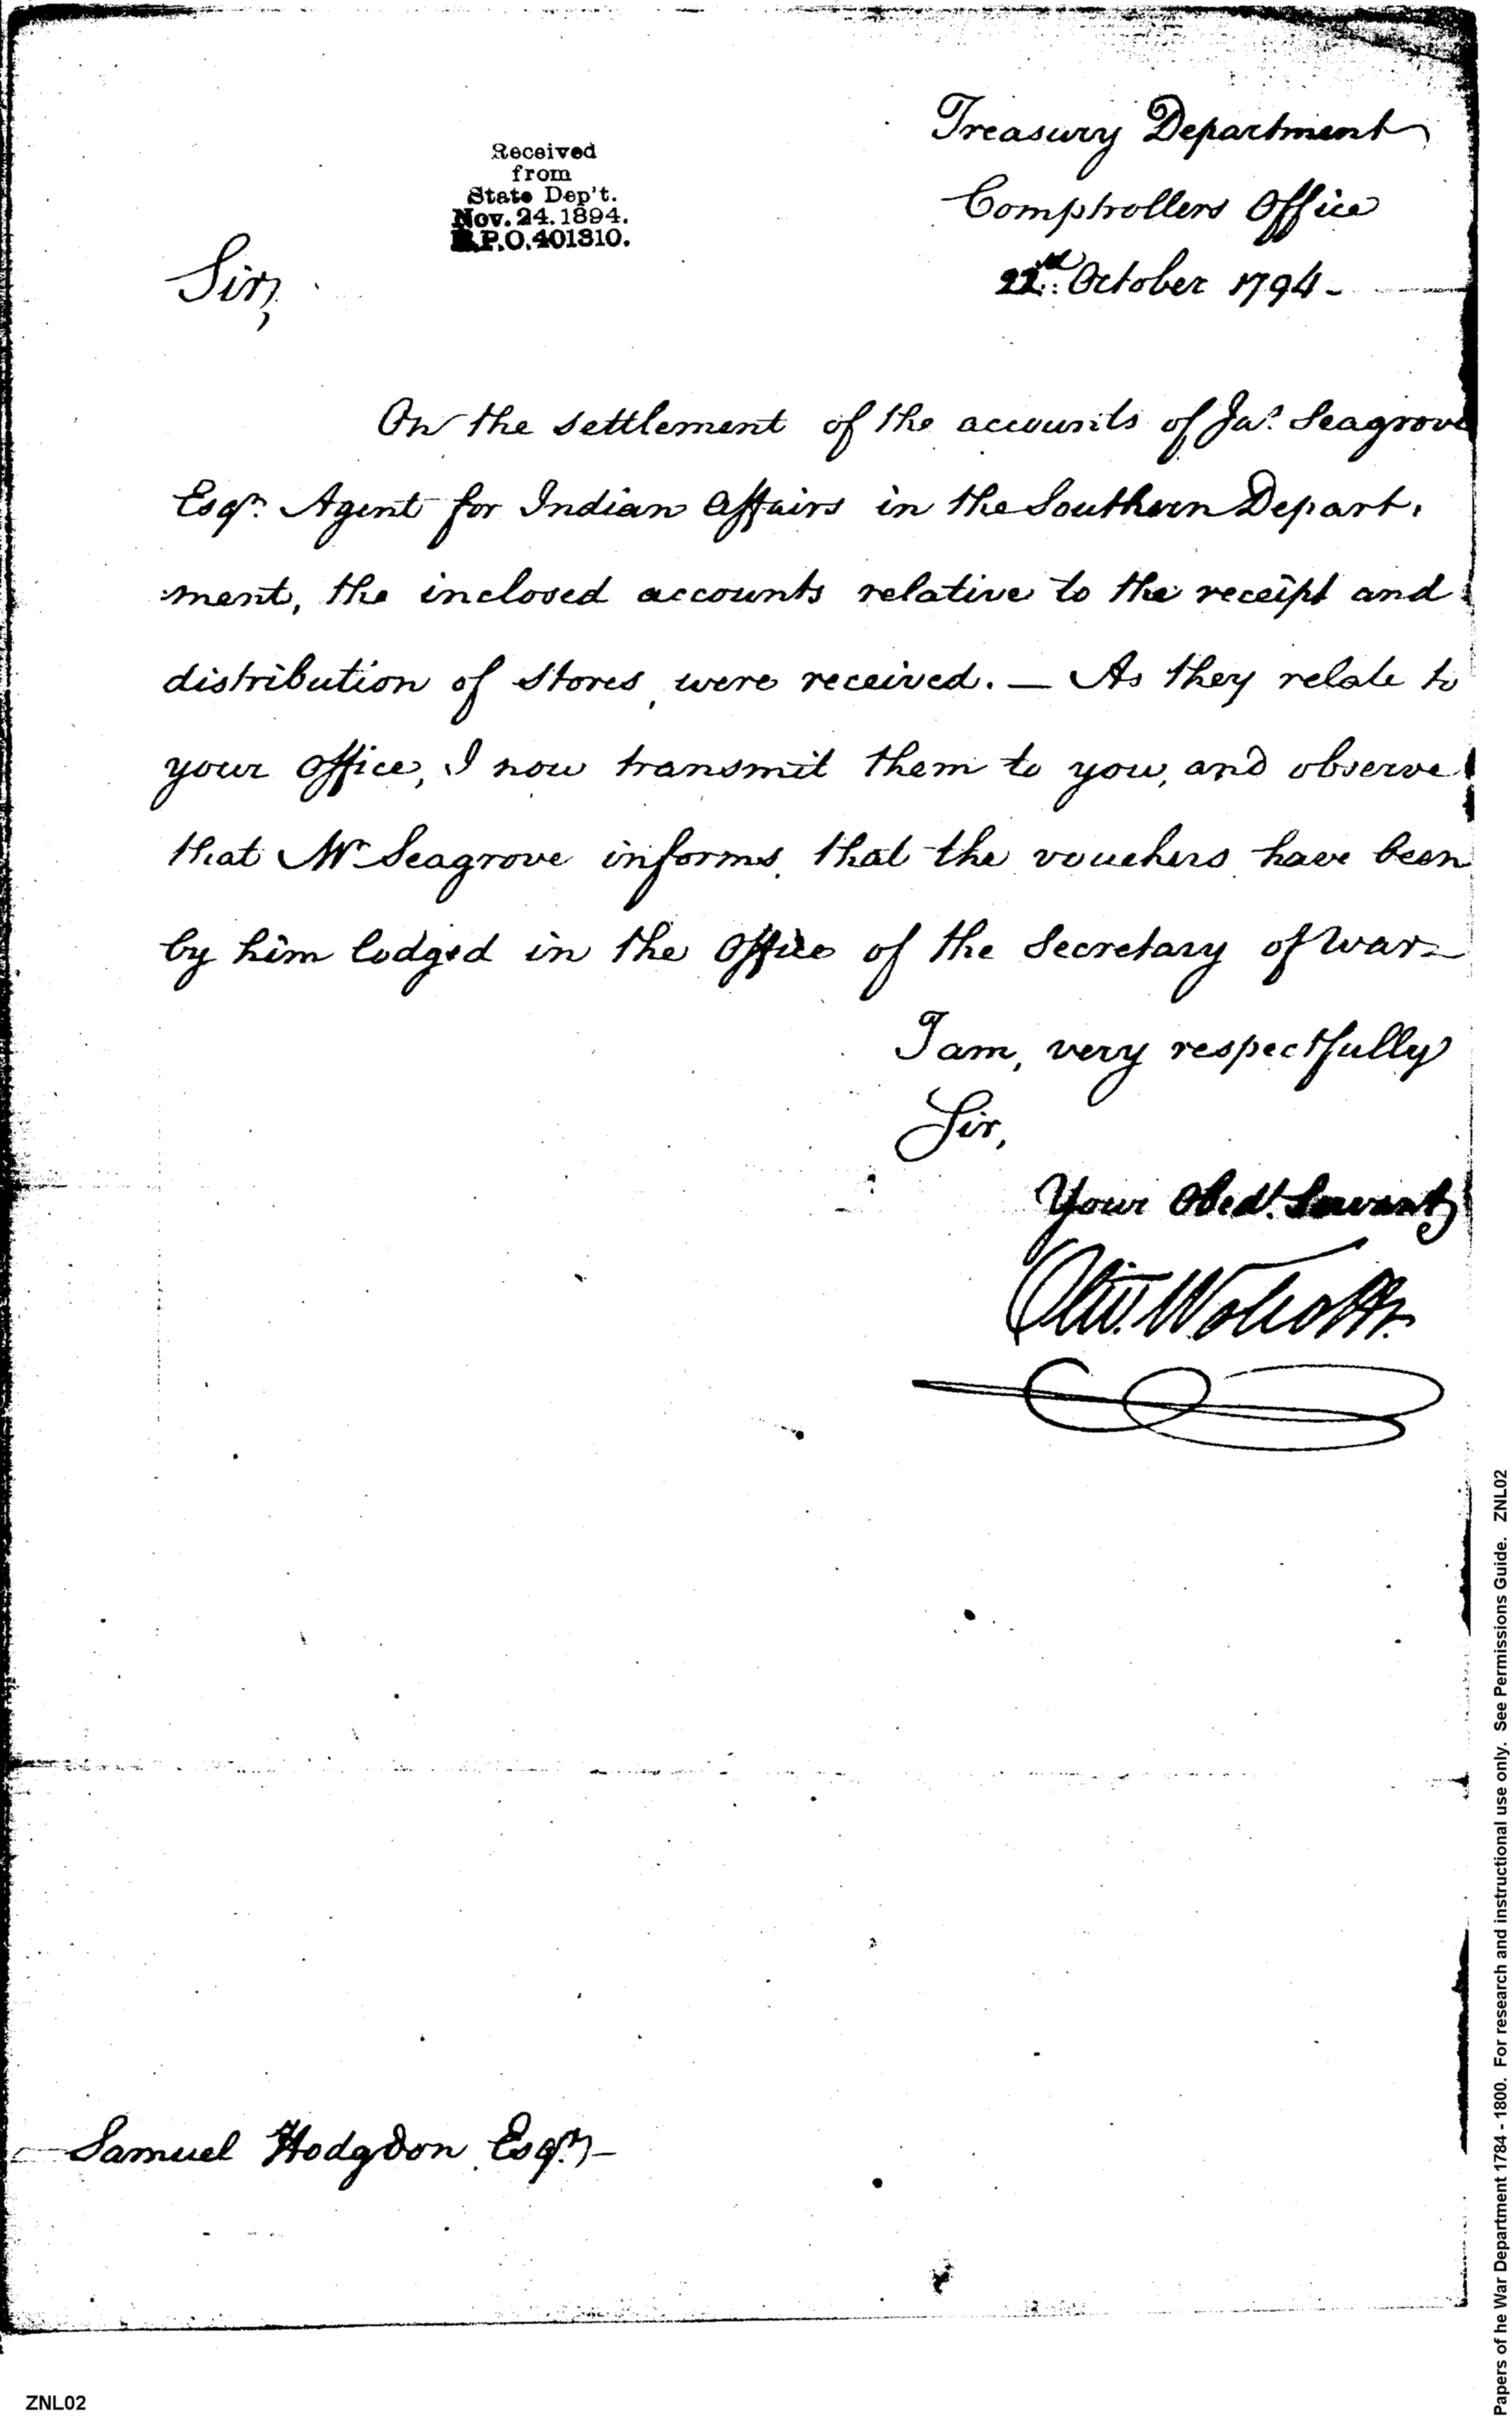 Treasury Department
Comptrollers Office
22d. October 1794.
Received
from
State Dep't.
Nov. 24. 1894.
R.P.O. 401310.
Sir,
On the settlement of the accounts of Jas. Seagrove
Esqr. Agent for Indian Affairs in the Southern Depart,
:ment, the inclosed accounts relative to the receipt and
distribution of stores, were received. — As they relate to
your Office, I now transmit them to you, and observe
that Mr Seagrove informs, that the vouchers have been
by him lodged in the Office of the Secretary of War—
I am, very respectfully
Sir,
Your Obedt. Servant
Oliv. Wolcott Jr.
Samuel Hodgdon Esqr.—
ZNL02
Papers of he War Department 1784 - 1800. For research and instructional use only. See Permissions Guide. ZNL02